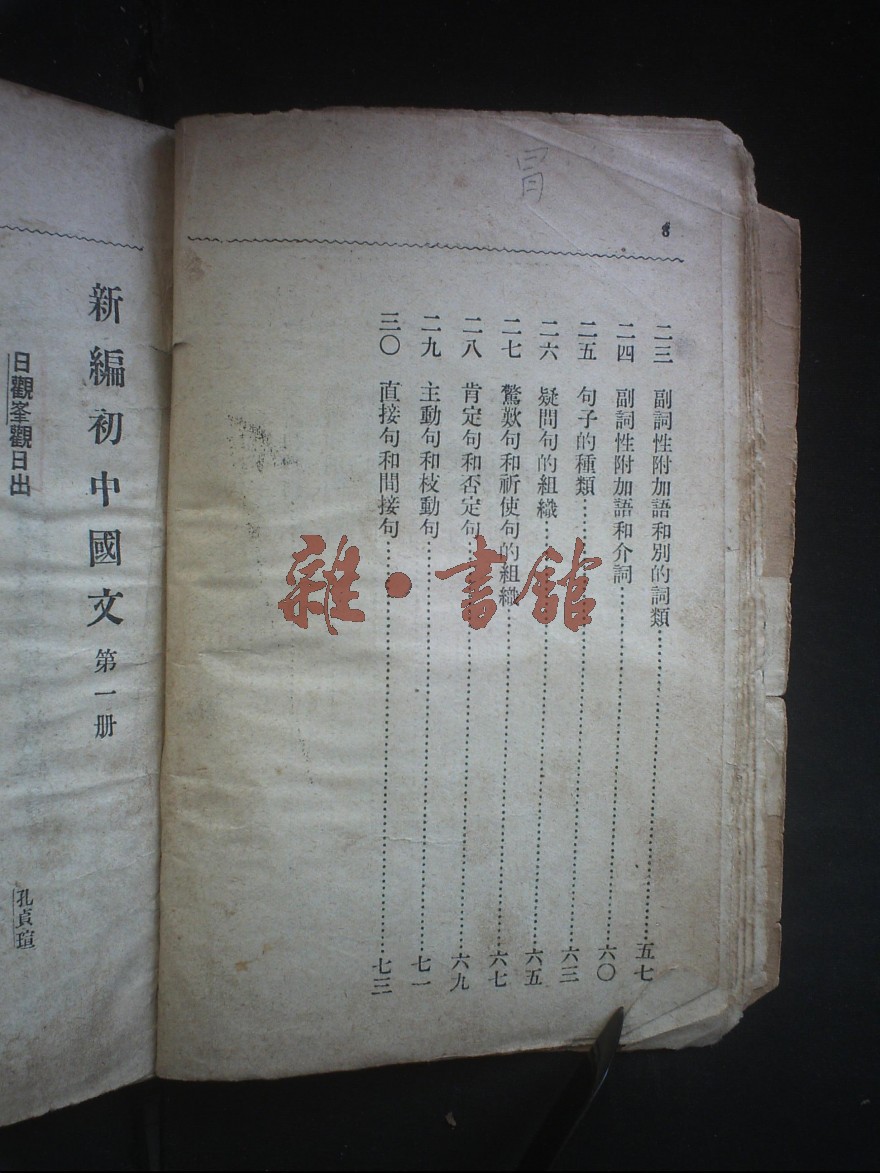 冒
8
二三 副詞性附加語和別的詞類……五七
二四 副詞性附加語和介詞……六〇
二五 句子的種類……六三
二六 疑問句的組織……六五
二七 驚歎句和祈使句的組織……六七
二八 肯定句和否定句……六九
二九 主動句和枝動句……七一
三〇 直接句和間接句……七三
雜·書館
新編初中國文 第一册
日觀峯觀日出
孔貞瑄